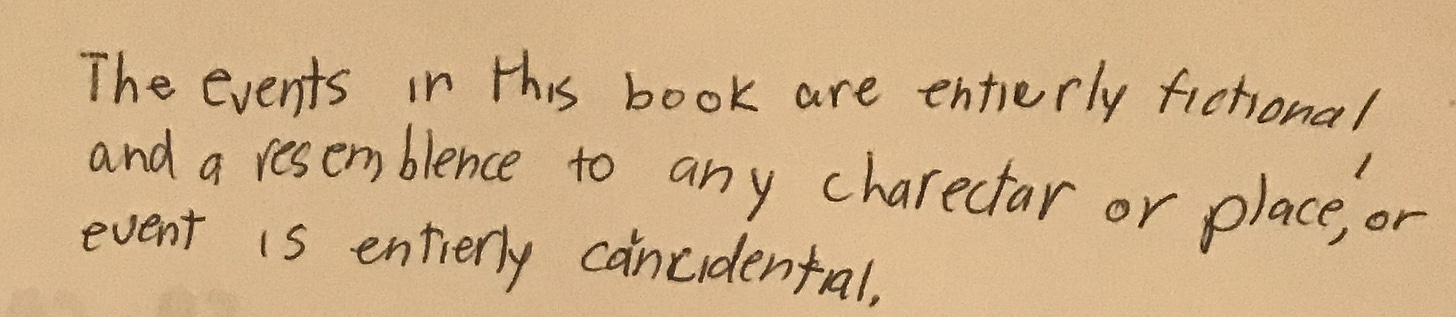 The events in this book are entierly fictional,
and a resemblence to any charectar or place, or
event is entierly cancidential.